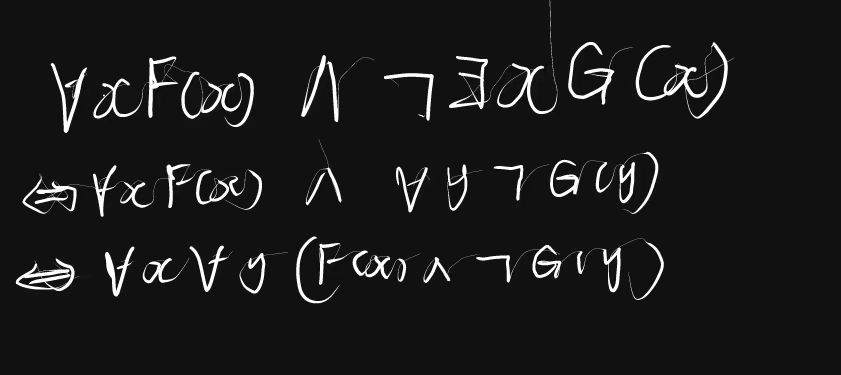 ∀xF(x) ∧ ¬∃xG(x)
⇔ ∀xF(x) ∧ ∀y¬G(y)
⇔ ∀x∀y(F(x) ∧ ¬G(y))